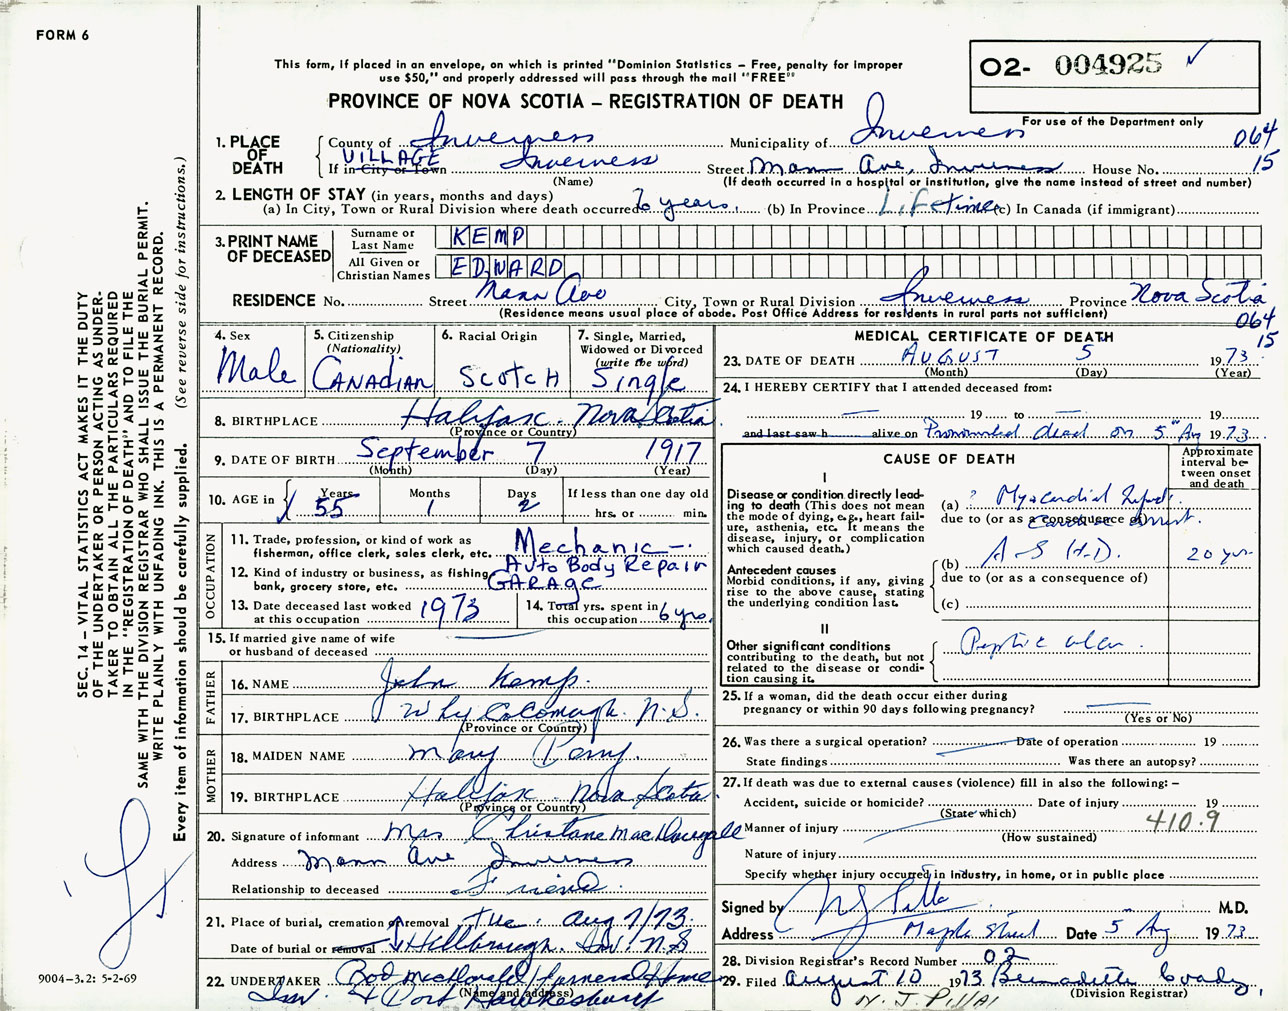 FORM 6
This form, if placed in an envelope, on which is printed "Dominion Statistics – Free, penalty for improper
use $50," and properly addressed will pass through the mail "FREE"
O2- 004925 ✓
PROVINCE OF NOVA SCOTIA – REGISTRATION OF DEATH
For use of the Department only
1. PLACE OF DEATH
County of Inverness Municipality of Inverness 064
VILLAGE
If in City or Town Inverness Street Mann Ave, Inverness House No. 15
(Name) (If death occurred in a hospital or institution, give the name instead of street and number)
2. LENGTH OF STAY (in years, months and days)
(a) In City, Town or Rural Division where death occurred years. (b) In Province Lifetime (c) In Canada (if immigrant)
3. PRINT NAME OF DECEASED
Surname or Last Name KEMP
All Given or Christian Names EDWARD
RESIDENCE No. Street Mann Ave City, Town or Rural Division Inverness Province Nova Scotia
(Residence means usual place of abode. Post Office Address for residents in rural parts not sufficient) 064
15
4. Sex
Male
5. Citizenship
(Nationality)
CANADIAN
6. Racial Origin
SCOTCH
7. Single, Married,
Widowed or Divorced
(write the word)
Single
8. BIRTHPLACE Halifax. Nova Scotia
(Province or Country)
9. DATE OF BIRTH September 7 1917
(Month) (Day) (Year)
10. AGE in Years Months Days If less than one day old
55 1 2 hrs. or min.
OCCUPATION
11. Trade, profession, or kind of work as
fisherman, office clerk, sales clerk, etc. Mechanic
12. Kind of industry or business, as fishing,
bank, grocery store, etc. Auto Body Repair
GARAGE
13. Date deceased last worked
at this occupation 1973
14. Total yrs. spent in
this occupation 6 yrs.
15. If married give name of wife
or husband of deceased
FATHER
16. NAME John Kemp.
17. BIRTHPLACE Whycocomagh. N.S.
(Province or Country)
MOTHER
18. MAIDEN NAME Mary Perry.
19. BIRTHPLACE Halifax Nova Scotia.
(Province or Country)
20. Signature of informant Mrs Christane MacDougall
Address Mann Ave Inverness
Relationship to deceased Friend.
21. Place of burial, cremation or removal Tue. Aug 7/73.
Date of burial or removal Hillsbrough. Inv. N.S
22. UNDERTAKER Rod McDonald Funeral Home
(Name and address)
Inv. & Port Hawkesbury
MEDICAL CERTIFICATE OF DEATH
23. DATE OF DEATH AUGUST 5 1973
(Month) (Day) (Year)
24. I HEREBY CERTIFY that I attended deceased from:
19 to 19
and last saw h alive on Pronounced dead on 5th Aug 1973.
CAUSE OF DEATH
Approximate
interval be-
tween onset
and death
I
Disease or condition directly lead-
ing to death (This does not mean
the mode of dying, e.g., heart fail-
ure, asthenia, etc. It means the
disease, injury, or complication
which caused death.)
(a) ? Myocardial Infarct.
due to (or as a consequence of)
Antecedent causes
Morbid conditions, if any, giving
rise to the above cause, stating
the underlying condition last.
(b) A-S (H.D). 20 yr.
due to (or as a consequence of)
(c)
II
Other significant conditions
contributing to the death, but not
related to the disease or condi-
tion causing it.
Peptic ulcer.
25. If a woman, did the death occur either during
pregnancy or within 90 days following pregnancy?
(Yes or No)
26. Was there a surgical operation? Date of operation 19
State findings Was there an autopsy?
27. If death was due to external causes (violence) fill in also the following: –
Accident, suicide or homicide? Date of injury 19
(State which)
410.9
Manner of injury
(How sustained)
Nature of injury
Specify whether injury occurred in industry, in home, or in public place
Signed by M.D.
Address Maple Street Date 5 Aug 1973
28. Division Registrar's Record Number 02
29. Filed August 10 1973 Bernadette Coady,
(Division Registrar)
N. J. PILLAI
SEC. 14 – VITAL STATISTICS ACT MAKES IT THE DUTY
OF THE UNDERTAKER OR PERSON ACTING AS UNDER-
TAKER TO OBTAIN ALL THE PARTICULARS REQUIRED
IN THE "REGISTRATION OF DEATH" AND TO FILE THE
SAME WITH THE DIVISION REGISTRAR WHO SHALL ISSUE THE BURIAL PERMIT.
WRITE PLAINLY WITH UNFADING INK. THIS IS A PERMANENT RECORD.
Every item of information should be carefully supplied. (See reverse side for instructions.)
9004–3.2: 5-2-69